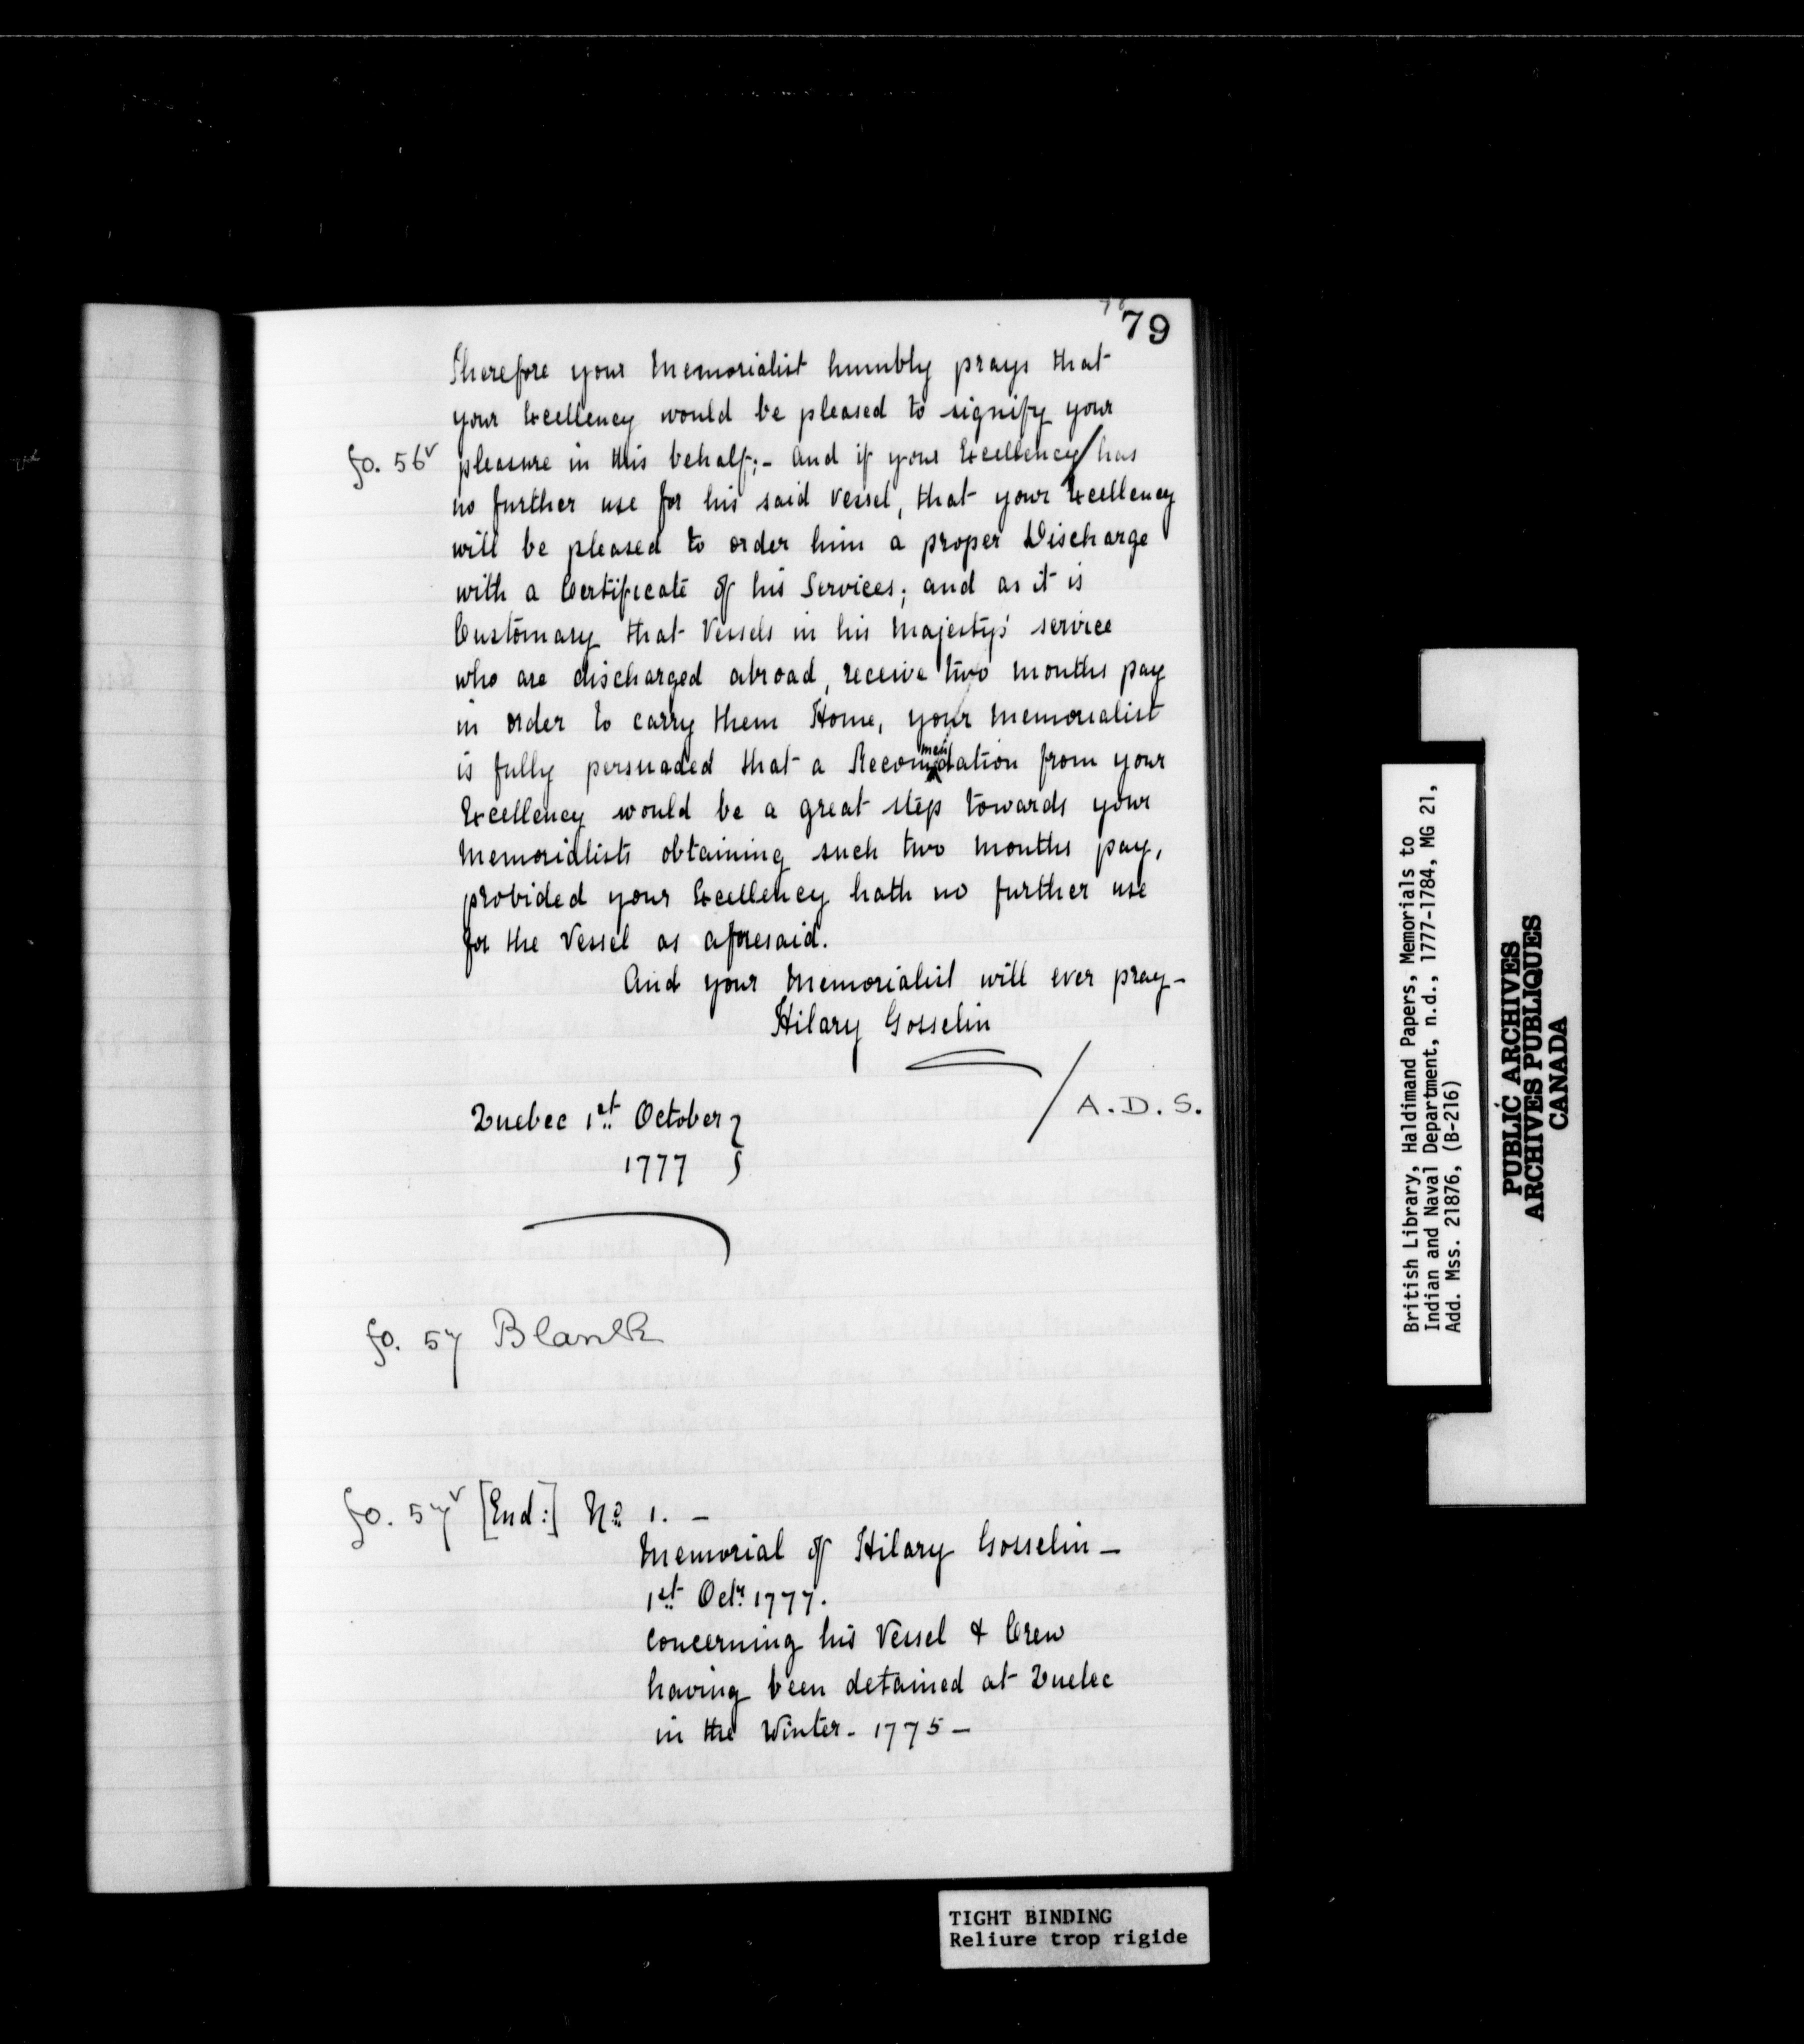 79
Therefore your Memorialist humbly prays that
your Excellency would be pleased to signify your
fo. 56v pleasure in this behalf;- And if your Excellency/has
no further use for his said vessel, that your Excellency
will be pleased to order him a proper Discharge
with a Certificate of his Services; and as it is
Customary that Vessels in his Majesty's service
who are discharged abroad, receive two months pay
in order to carry them Home, your Memorialist
is fully persuaded that a Recommendation from your
Excellency would be a great step towards your
Memorialists obtaining such two months pay,
provided your Excellency hath no further use
for the Vessel as aforesaid.
And your Memorialist will ever pray-
Hilary Gosselin
/ A.D.S.
Quebec 1st October }
1777
fo. 57 Blank
fo. 57v [End:] No 1. -
Memorial of Hilary Gosselin -
1st Octr 1777.
Concerning his Vessel & Crew
having been detained at Quebec
in the Winter - 1775 -
British Library, Haldimand Papers, Memorials to
Indian and Naval Department, n.d., 1777-1784, MG 21,
Add. Mss. 21876, (B-216)
PUBLIC ARCHIVES
ARCHIVES PUBLIQUES
CANADA
TIGHT BINDING
Reliure trop rigide